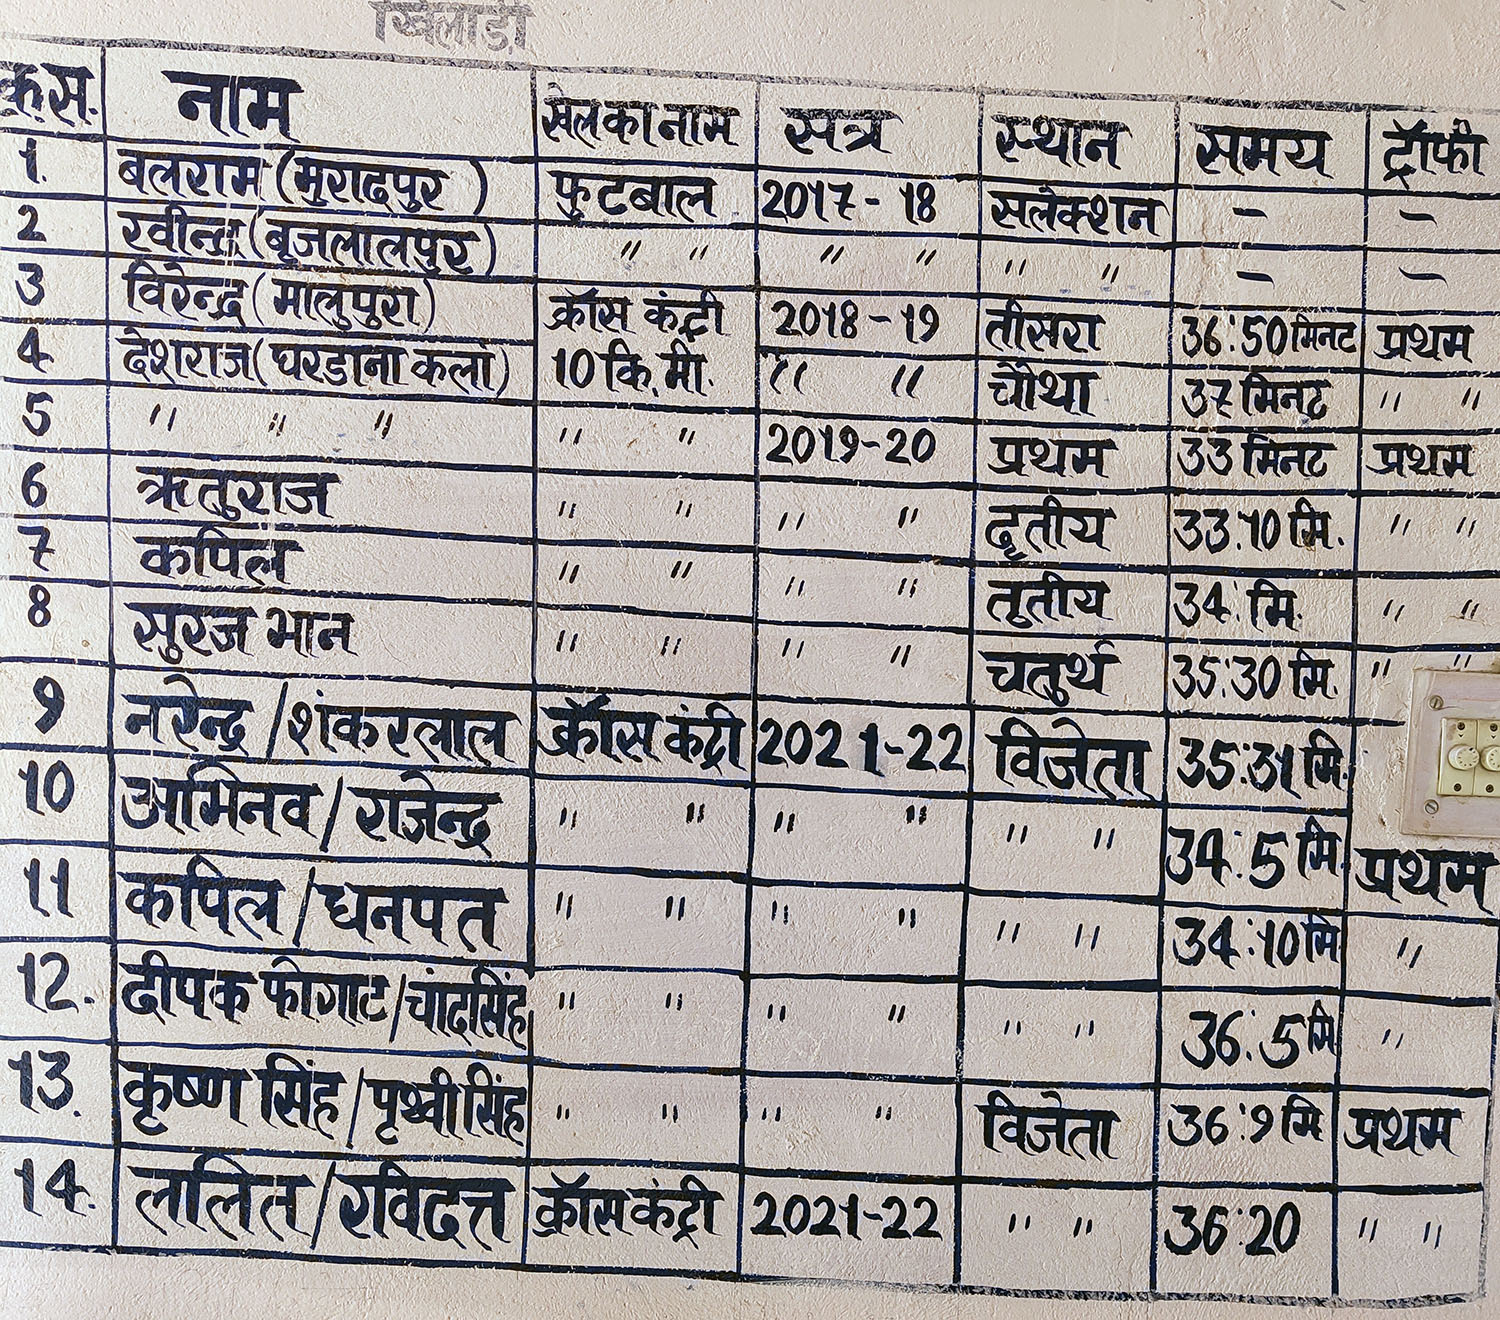 खिलाड़ी
क्र.स. नाम खेल का नाम सत्र स्थान समय ट्रॉफी
1. बलराम (मुरादपुर) फुटबाल 2017-18 सलेक्शन – –
2 रवीन्द्र (बृजलालपुर) " " " " " " – –
3 विरेन्द्र (मालुपुरा) क्रॉस कंट्री 2018-19 तीसरा 36:50 मिनट प्रथम
4 देशराज (घरडाना कलां) 10 कि.मी. " " चौथा 37 मिनट " "
5 " " " " " 2019-20 प्रथम 33 मिनट प्रथम
6 ऋतुराज " " " " दृतीय 33:10 मि. " "
7 कपिल " " " " तृतीय 34: मि. " "
8 सुरज भान " " " " चतुर्थ 35:30 मि. " "
9 नरेन्द्र / शंकरलाल क्रॉस कंट्री 2021-22 विजेता 35:31 मि.
10 अभिनव / राजेन्द्र " " " " " " 34:5 मि. प्रथम
11 कपिल / घनपत " " " " " " 34:10 मि "
12. दीपक फोगाट / चांदसिंह " " " " " " 36:5 मि "
13. कृष्ण सिंह / पृथ्वी सिंह " " " " विजेता 36:9 मि प्रथम
14. ललित / रविदत्त क्रॉस कंट्री 2021-22 " " 36:20 " "